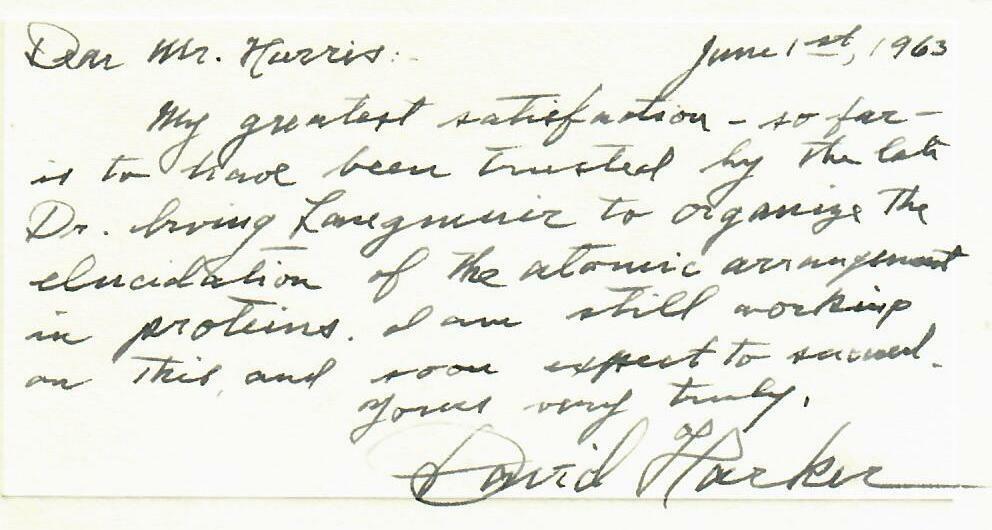 Dear Mr. Harris: June 1st, 1963
My greatest satisfaction - so far -
is to have been trusted by the late
Dr. Irving Langmuir to organize the
elucidation of the atomic arrangement
in proteins. I am still working
on this, and soon expect to succeed.
Yours very truly,
David Harker